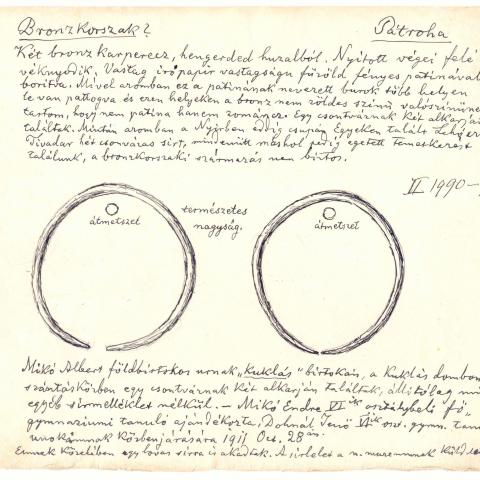 Bronzkorszak? Pátroha
Két bronz karperecz, hengerded huzalból. Nyitott végei felé
véknyodik. Vastag irópapir vastagságu fűzöld fényes patinával
boritva. Mivel azomban ez a patinának nevezett burok több helyen
le van pattogva és ezen helyeken a bronz nem zöldes szinű valószinűnek
tartom, hogy nem patina hanem zománcz. Egy csontvárnak két alkarján
találtek. Mintán azomban a Nyirben eddig csupán Egyeken talált
Tivadar hét csontvázas sirt, mindenütt máshol pedig égetett temetkezést
találunk, a bronzkorszaki származás nem biztos.
II 1990-
átmetszet
természetes
nagyság.
átmetszet
Mikó Albert földbirtokos urnak „Kuklás" birtokán, a Kuklás dombon
szántásközben egy csontvárnak két alkarján találtek, állitólag
egyéb sirmelléklet nélkül. – Mikó Endre VIik osztálybeli fő-
gymnasiumi tanuló ajándékozta, Dohnál Jenő VIik oszt. gymn. tan.
unokámnak Közbenjárására 1911 Oct. 28án.
Ennek Közelében egy lovas sirra is akadtek. A sirlelet a n. muzeumnak